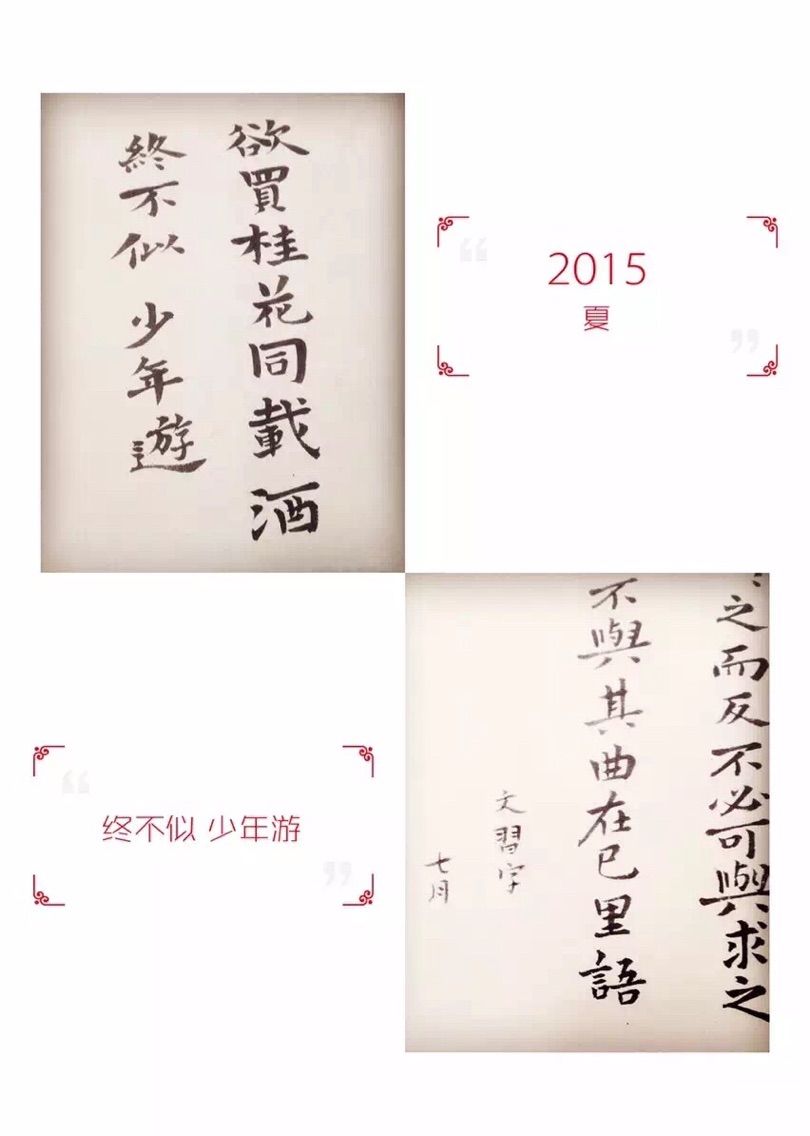 欲買桂花同載酒
終不似 少年遊
2015
夏
终不似 少年游
之而反不必可與求之
不與其曲在已里語
文習字
七月